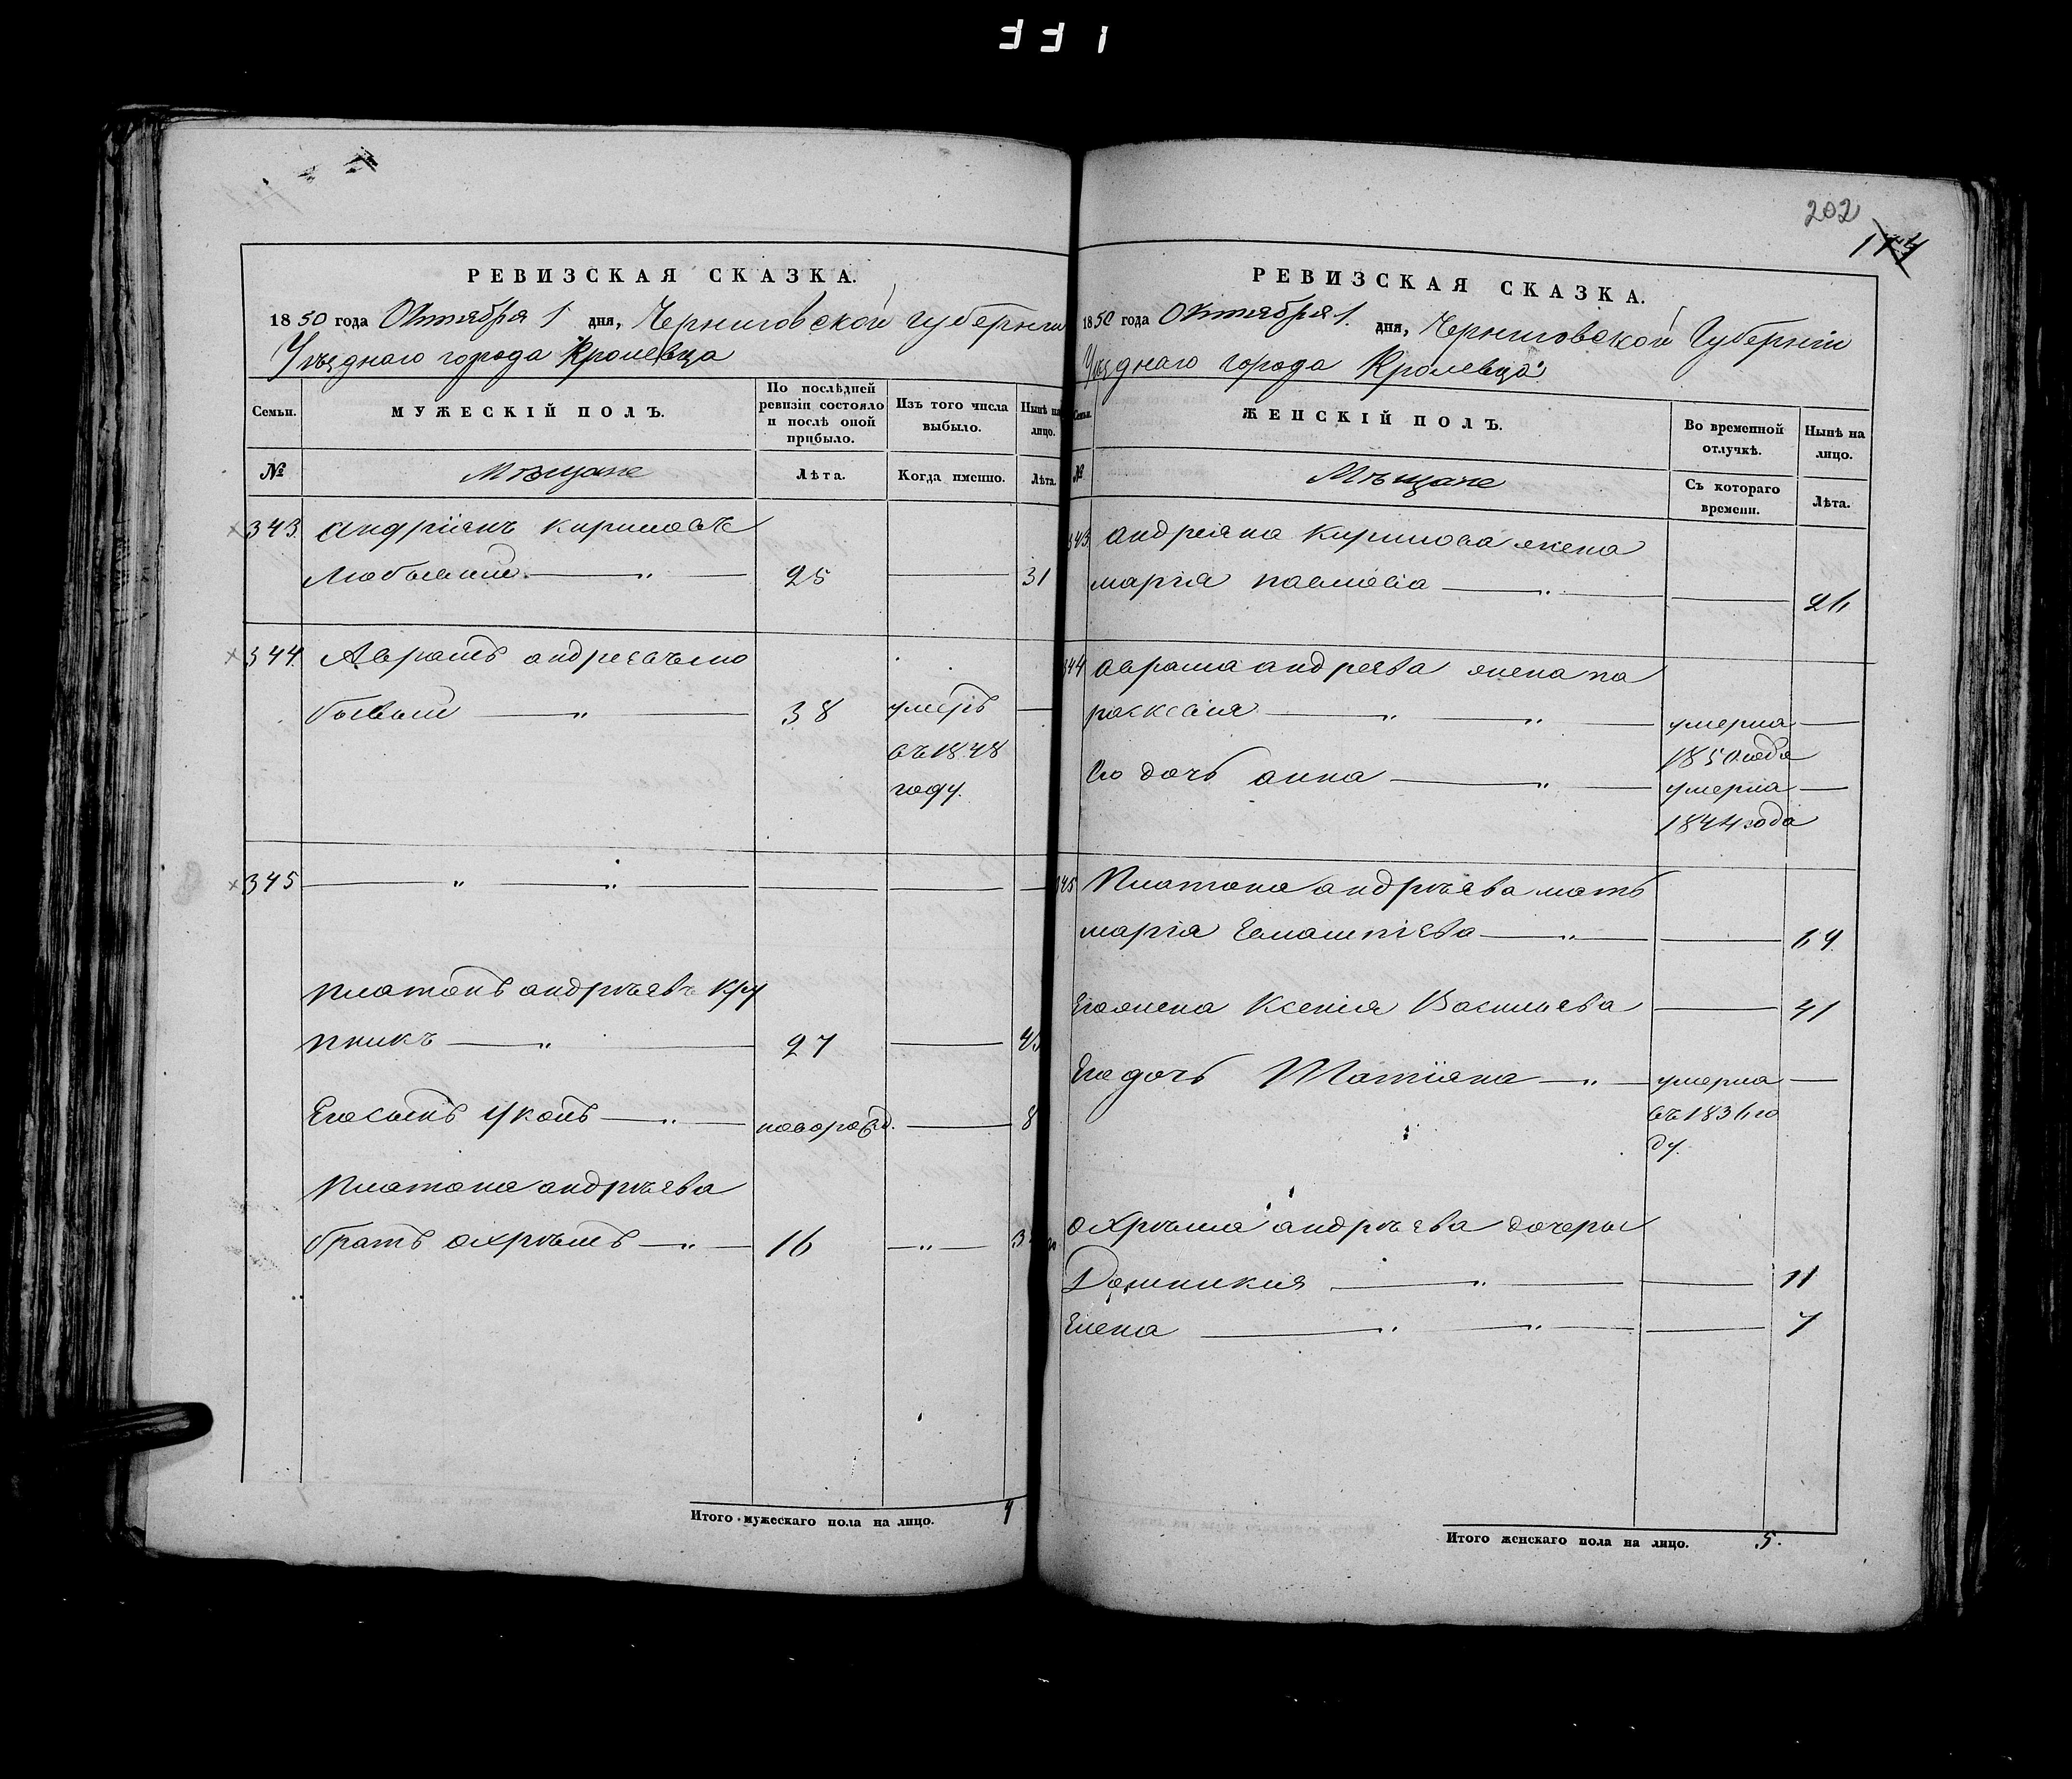 FF1
РЕВИЗСКАЯ СКАЗКА.
1850 года Октября 1 дня, Черниговской губерніи
Уѣзднаго города Кролевца
Семьи.
МУЖЕСКІЙ ПОЛЪ.
По послѣдней ревизіи состояло и послѣ оной прибыло.
Изъ того числа выбыло.
Нынѣ на лицо.
№
Мѣщане
Лѣта.
Когда именно.
Лѣта.
343. Андріянъ Кириловъ
25 31
344 Аврамъ андреевъ
38 умеръ
въ 1848
году.
345
Платонъ андрѣевъ Кру
пникъ 27
Его сынъ новорожд. 8
Платона андрѣева
братъ охрѣмъ 16
Итого мужескаго пола на лицо. 4
202
РЕВИЗСКАЯ СКАЗКА.
1850 года Октября 1. дня, Черниговской Губерніи
Уѣзднаго города Кролевца
Семьи.
ЖЕНСКІЙ ПОЛЪ.
Во временной отлучкѣ.
Нынѣ на лицо.
№
Мѣщане
Съ котораго времени.
Лѣта.
343 андреяна Кирилова жена
марія павлова 26
344 аврама андреева жена па
раскевія умерла
1850 года
Его дочь анна умерла
1844 года
345 Платона андрѣева мать
марія 64
Его жена Ксенія Васильева 41
Его дочь Татіяна умерла
въ 1836 го
ду.
охрѣма андрѣева дочеры
Доминикия 11
Елена 7
Итого женскаго пола на лицо. 5.